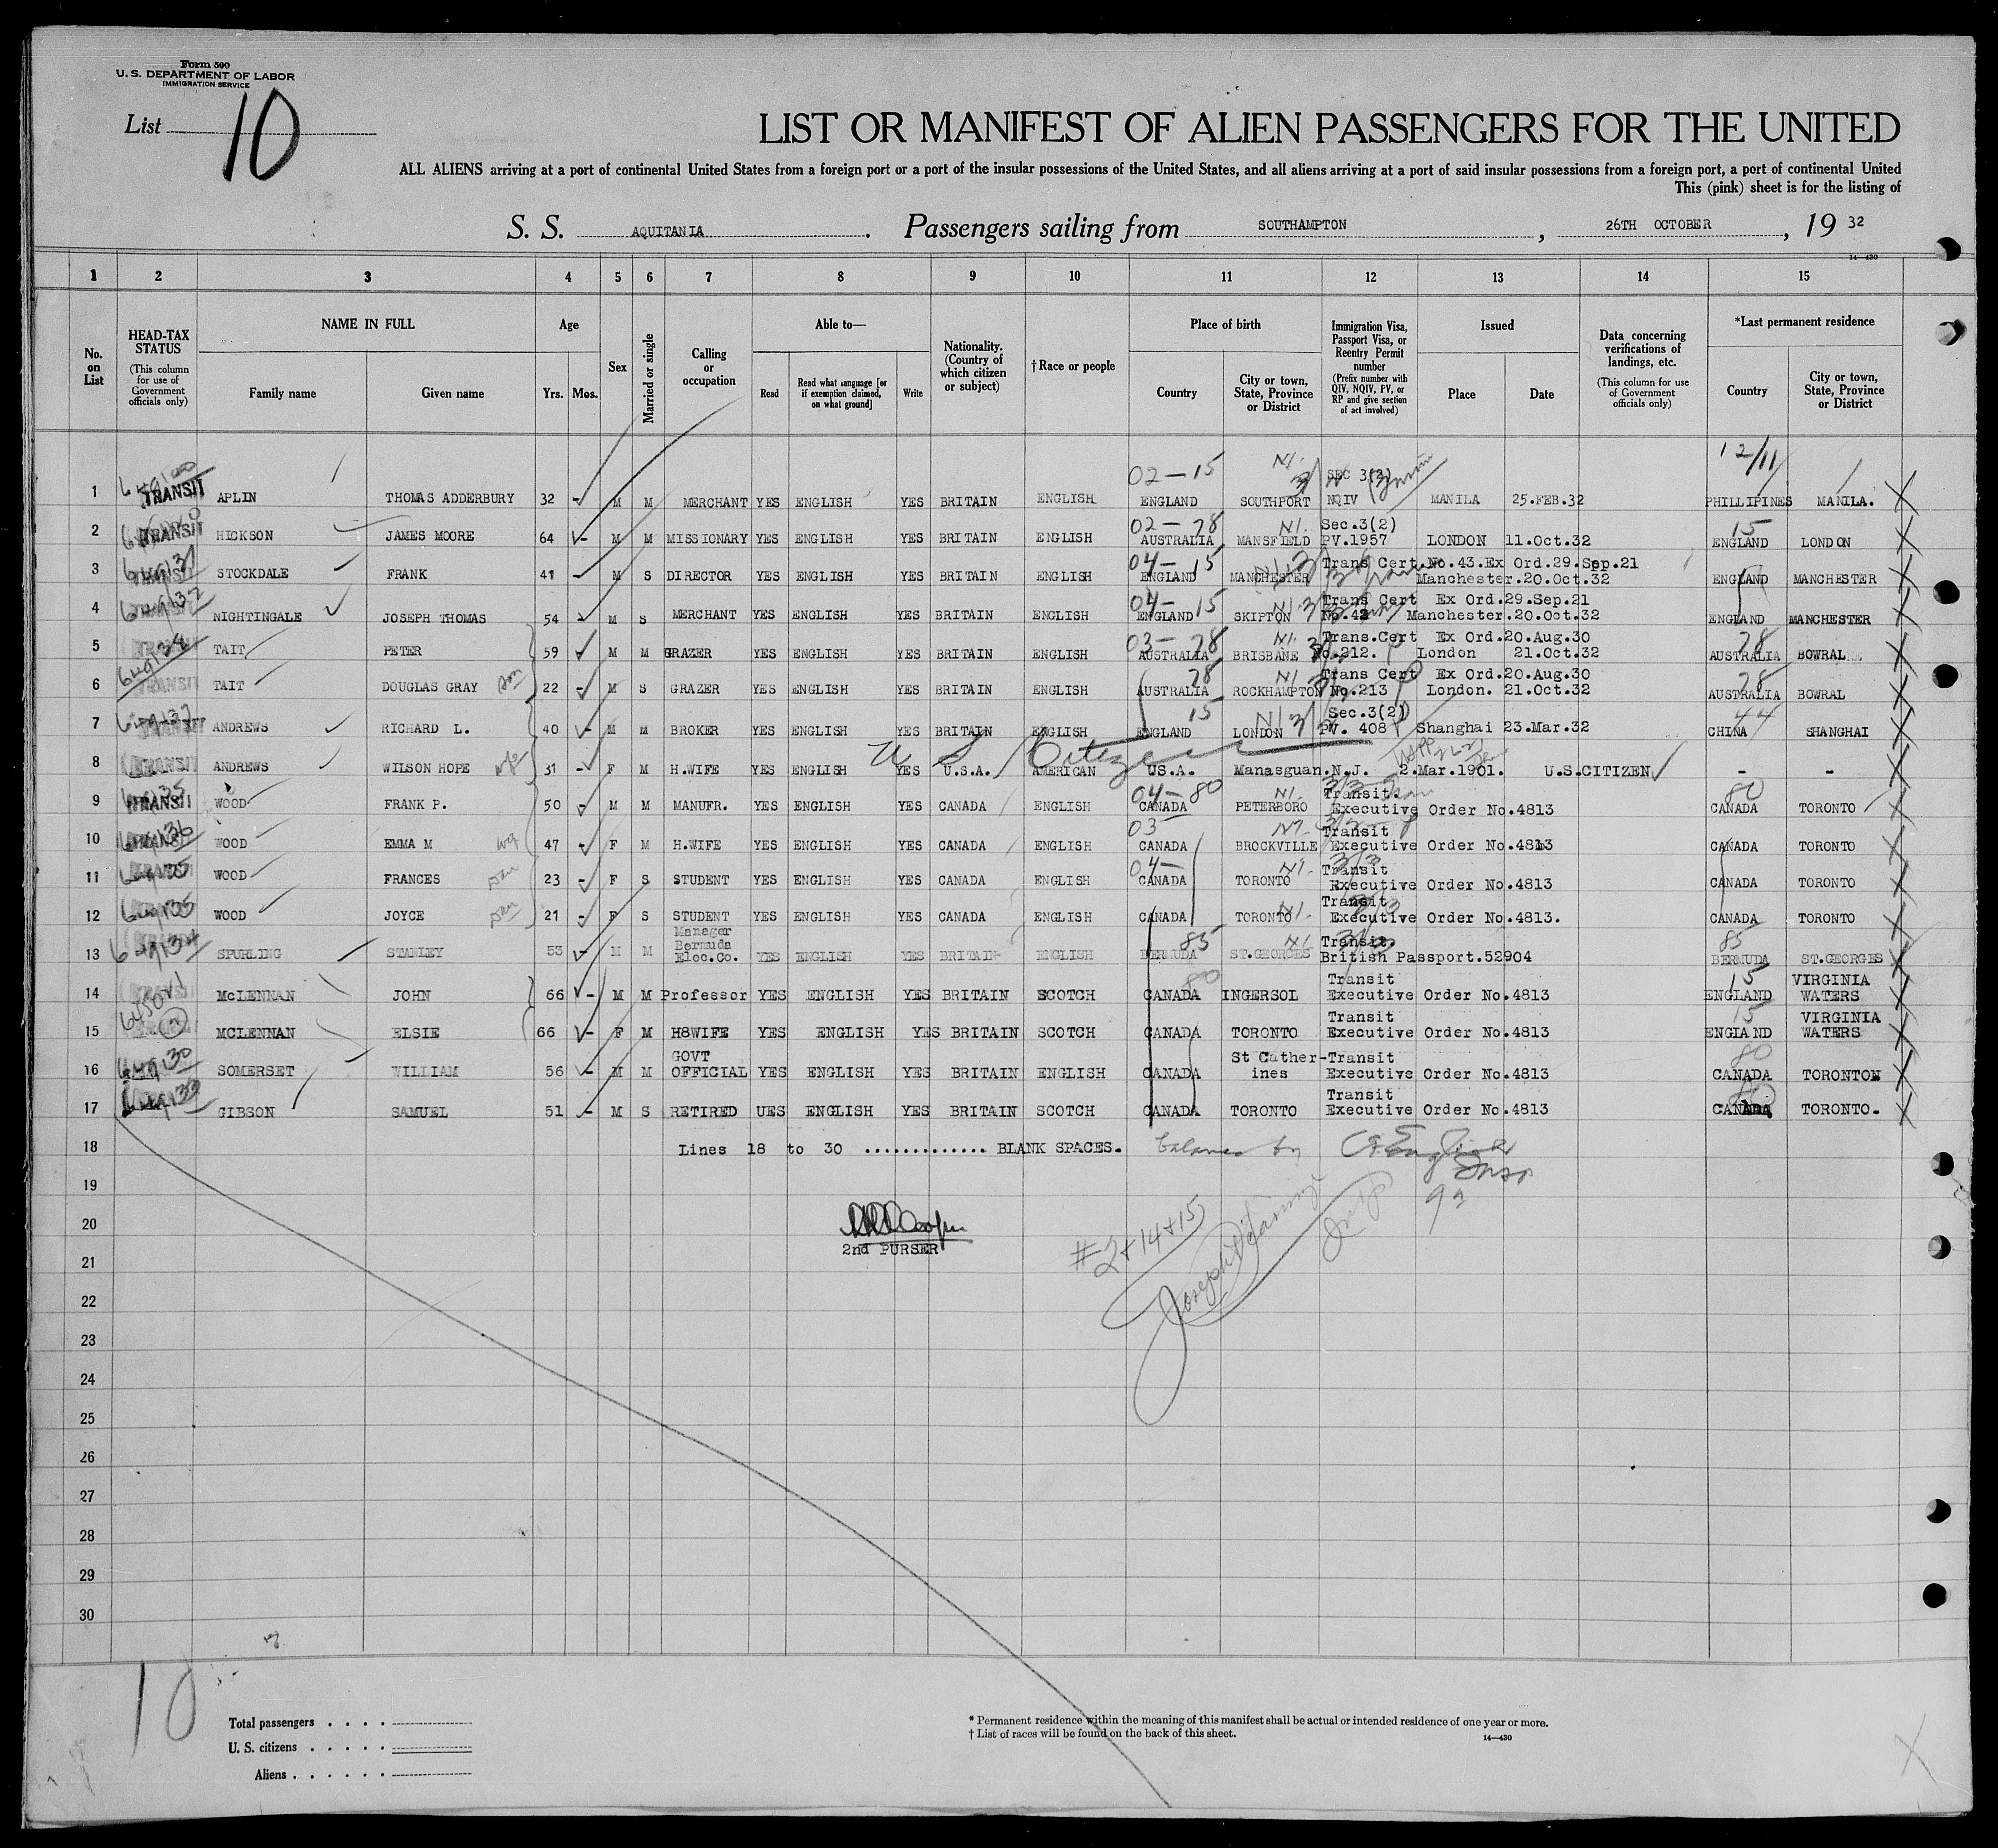 Form 500
U. S. DEPARTMENT OF LABOR
IMMIGRATION SERVICE
List 10
LIST OR MANIFEST OF ALIEN PASSENGERS FOR THE UNITED
ALL ALIENS arriving at a port of continental United States from a foreign port or a port of the insular possessions of the United States, and all aliens arriving at a port of said insular possessions from a foreign port, a port of continental United
This (pink) sheet is for the listing of
S. S. AQUITANIA. Passengers sailing from SOUTHAMPTON, 26TH OCTOBER, 19 32
14—430
1 2 3 4 5 6 7 8 9 10 11 12 13 14 15
No. on List
HEAD-TAX STATUS (This column for use of Government officials only)
NAME IN FULL
Family name Given name
Age
Yrs. Mos.
Sex
Married or single
Calling or occupation
Able to—
Read Read what language [or if exemption claimed, on what ground] Write
Nationality. (Country of which citizen or subject)
† Race or people
Place of birth
Country City or town, State, Province or District
Immigration Visa, Passport Visa, or Reentry Permit number (Prefix number with QIV, NQIV, PV, or RP and give section of act involved)
Issued
Place Date
Data concerning verifications of landings, etc. (This column for use of Government officials only)
*Last permanent residence
Country City or town, State, Province or District
02—15 SEC 3(2) 12/11
1 TRANSIT APLIN THOMAS ADDERBURY 32 - M M MERCHANT YES ENGLISH YES BRITAIN ENGLISH ENGLAND SOUTHPORT NQIV MANILA 25.FEB.32 PHILLIPINES MANILA.
02—28 N1. Sec.3(2) 15
2 TRANSIT HICKSON JAMES MOORE 64 - M M MISSIONARY YES ENGLISH YES BRITAIN ENGLISH AUSTRALIA MANSFIELD PV.1957 LONDON 11.Oct.32 ENGLAND LONDON
04—15 Trans Cert.No.43.Ex Ord.29.Sep.21
3 STOCKDALE FRANK 41 - M S DIRECTOR YES ENGLISH YES BRITAIN ENGLISH ENGLAND MANCHESTER Manchester.20.Oct.32 ENGLAND MANCHESTER
04—15 Trans Cert Ex Ord.29.Sep.21
4 NIGHTINGALE JOSEPH THOMAS 54 - M S MERCHANT YES ENGLISH YES BRITAIN ENGLISH ENGLAND SKIPTON Manchester.20.Oct.32 ENGLAND MANCHESTER
03—28 N1. Trans.Cert Ex Ord.20.Aug.30 28
5 TAIT PETER 59 M M GRAZER YES ENGLISH YES BRITAIN ENGLISH AUSTRALIA BRISBANE No.212. London 21.Oct.32 AUSTRALIA BOWRAL
28 N1 Trans Cert Ex Ord.20.Aug.30 28
6 TRANSIT TAIT DOUGLAS GRAY son 22 - M S GRAZER YES ENGLISH YES BRITAIN ENGLISH AUSTRALIA ROCKHAMPTON No.213 London. 21.Oct.32 AUSTRALIA BOWRAL
15 Sec.3(2) 44
7 ANDREWS RICHARD L. 40 - M M BROKER YES ENGLISH YES BRITAIN ENGLISH ENGLAND LONDON PV. 408 Shanghai 23.Mar.32 CHINA SHANGHAI
U S Citizen
8 TRANSIT ANDREWS WILSON HOPE wife 31 - F M H.WIFE YES ENGLISH YES U.S.A. AMERICAN US.A. Manasguan.N.J. 2.Mar.1901. U.S.CITIZEN - -
04—80 N1. Transit. 80
9 TRANSIT WOOD FRANK P. 50 - M M MANUFR. YES ENGLISH YES CANADA ENGLISH CANADA PETERBORO Executive Order No.4813 CANADA TORONTO
03 Transit
10 WOOD EMMA M 47 - F M H.WIFE YES ENGLISH YES CANADA ENGLISH CANADA BROCKVILLE Executive Order No.4813 CANADA TORONTO
04— N1. Transit
11 WOOD FRANCES 23 - F S STUDENT YES ENGLISH YES CANADA ENGLISH CANADA TORONTO Executive Order No.4813 CANADA TORONTO
Transit
12 WOOD JOYCE 21 - F S STUDENT YES ENGLISH YES CANADA ENGLISH CANADA TORONTO Executive Order No.4813. CANADA TORONTO
85 N1. Transit. 85
13 SPURLING STANLEY 53 - M M Manager Bermuda Elec.Co. YES ENGLISH YES BRITAIN ENGLISH BERMUDA ST.GEORGES British Passport.52904 BERMUDA ST.GEORGES
80 Transit 15 VIRGINIA
14 McLENNAN JOHN 66 - M M Professor YES ENGLISH YES BRITAIN SCOTCH CANADA INGERSOL Executive Order No.4813 ENGLAND WATERS
Transit 15 VIRGINIA
15 MCLENNAN ELSIE 66 - F M HSWIFE YES ENGLISH YES BRITAIN SCOTCH CANADA TORONTO Executive Order No.4813 ENGLAND WATERS
GOVT St Cather-Transit 80
16 SOMERSET WILLIAM 56 - M M OFFICIAL YES ENGLISH YES BRITAIN ENGLISH CANADA ines Executive Order No.4813 CANADA TORONTO
Transit
17 GIBSON SAMUEL 51 - M S RETIRED UES ENGLISH YES BRITAIN SCOTCH CANADA TORONTO Executive Order No.4813 CANADA TORONTO.
18 Lines 18 to 30 ............. BLANK SPACES. balance by
19
20
2nd PURSER
#2+14+15
21
22
23
24
25
26
27
28
29
30
10
Total passengers
U. S. citizens
Aliens
* Permanent residence within the meaning of this manifest shall be actual or intended residence of one year or more.
† List of races will be found on the back of this sheet.
14—430